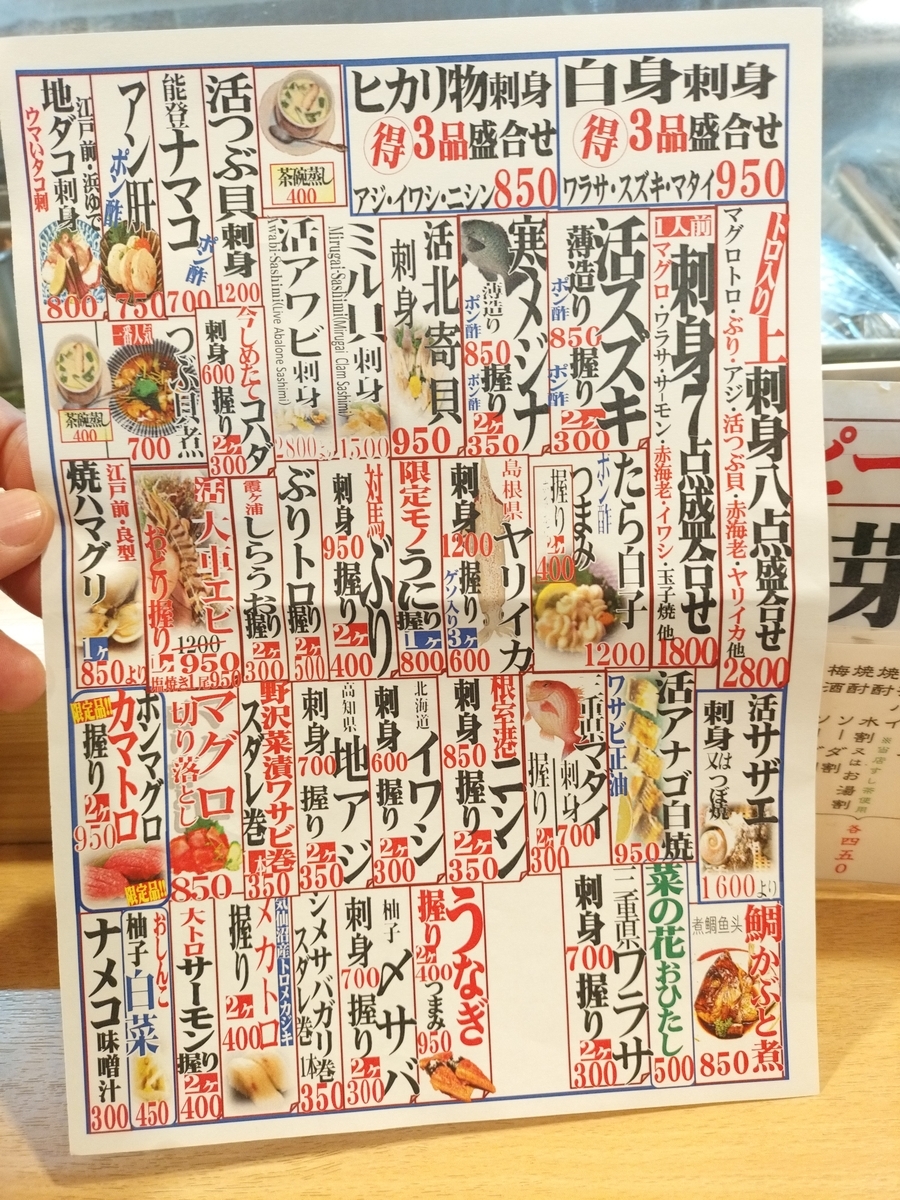 白身刺身
得3品盛合せ
ワラサ・スズキ・マタイ950
ヒカリ物刺身
得3品盛合せ
アジ・イワシ・ニシン850
茶碗蒸し
400
活つぶ貝刺身
1200
能登ナマコ
ポン酢
700
アン肝
ポン酢
750
江戸前・浜ゆで
地ダコ刺身
ウマいタコ刺
800
トロ入り上刺身八点盛合せ
マグロトロ・ぶり・アジ・活つぶ貝・赤海老・ヤリイカ他
2800
1人前
刺身7点盛合せ
マグロ・ワラサ・サーモン・赤海老・イワシ・玉子焼他
1800
活スズキ
薄造り
ポン酢
850
握り
ポン酢
2ヶ
300
寒メジナ
薄造り
ポン酢
850
握り
ポン酢
2ヶ
350
活北寄貝
刺身
950
ミル貝刺身
Mirugai-Sashimi(Mirugai Clam Sashimi)
1500
活アワビ刺身
Awabi-Sashimi(Live Abalone Sashimi)
2800
今しめたてコハダ
刺身
600
握り
2ヶ
300
一番人気
つぶ貝煮
700
茶碗蒸し
400
たら白子
ポン酢
つまみ
1200
握り2ヶ
400
島根県
ヤリイカ
刺身
1200
握り
ゲソ入り3ヶ
600
限定モノうに
握り
1ヶ
800
対馬
ぶり
刺身
950
握り
2ヶ
400
ぶりトロ握り
2ヶ
500
霞ヶ浦
しらうお握り
2ヶ
300
活大車エビ
おどり握り
1ヶ
1200
950
塩焼き1尾950
江戸前・良型
焼ハマグリ
1ヶ
850より
活サザエ
刺身又はつぼ焼
1600より
活アナゴ白焼
ワサビ正油
950
三重県マダイ
刺身
700
握り
2ヶ
300
根室港
ニシン
刺身
850
握り
2ヶ
350
北海道
イワシ
刺身
600
握り
2ヶ
300
高知県
地アジ
刺身
700
握り
2ヶ
350
野沢菜漬ワサビ巻
スダレ巻
1本
350
マグロ
切り落とし
850
ホンマグロ
カマトロ
握り
2ヶ
950
限定品!!
限定品!!
鯛かぶと煮
煮鯛鱼头
850
菜の花おひたし
500
三重県ワラサ
刺身
700
握り
2ヶ
300
うなぎ
握り
2ヶ
400
つまみ
950
柚子
〆サバ
刺身
700
握り
2ヶ
300
シメサバガリ巻
スダレ巻
1本
350
気仙沼産トロメカジキ
メカトロ
握り
2ヶ
400
大トロサーモン握り
2ヶ
400
おしんこ
柚子白菜
450
ナメコ味噌汁
300
芽
各四五〇